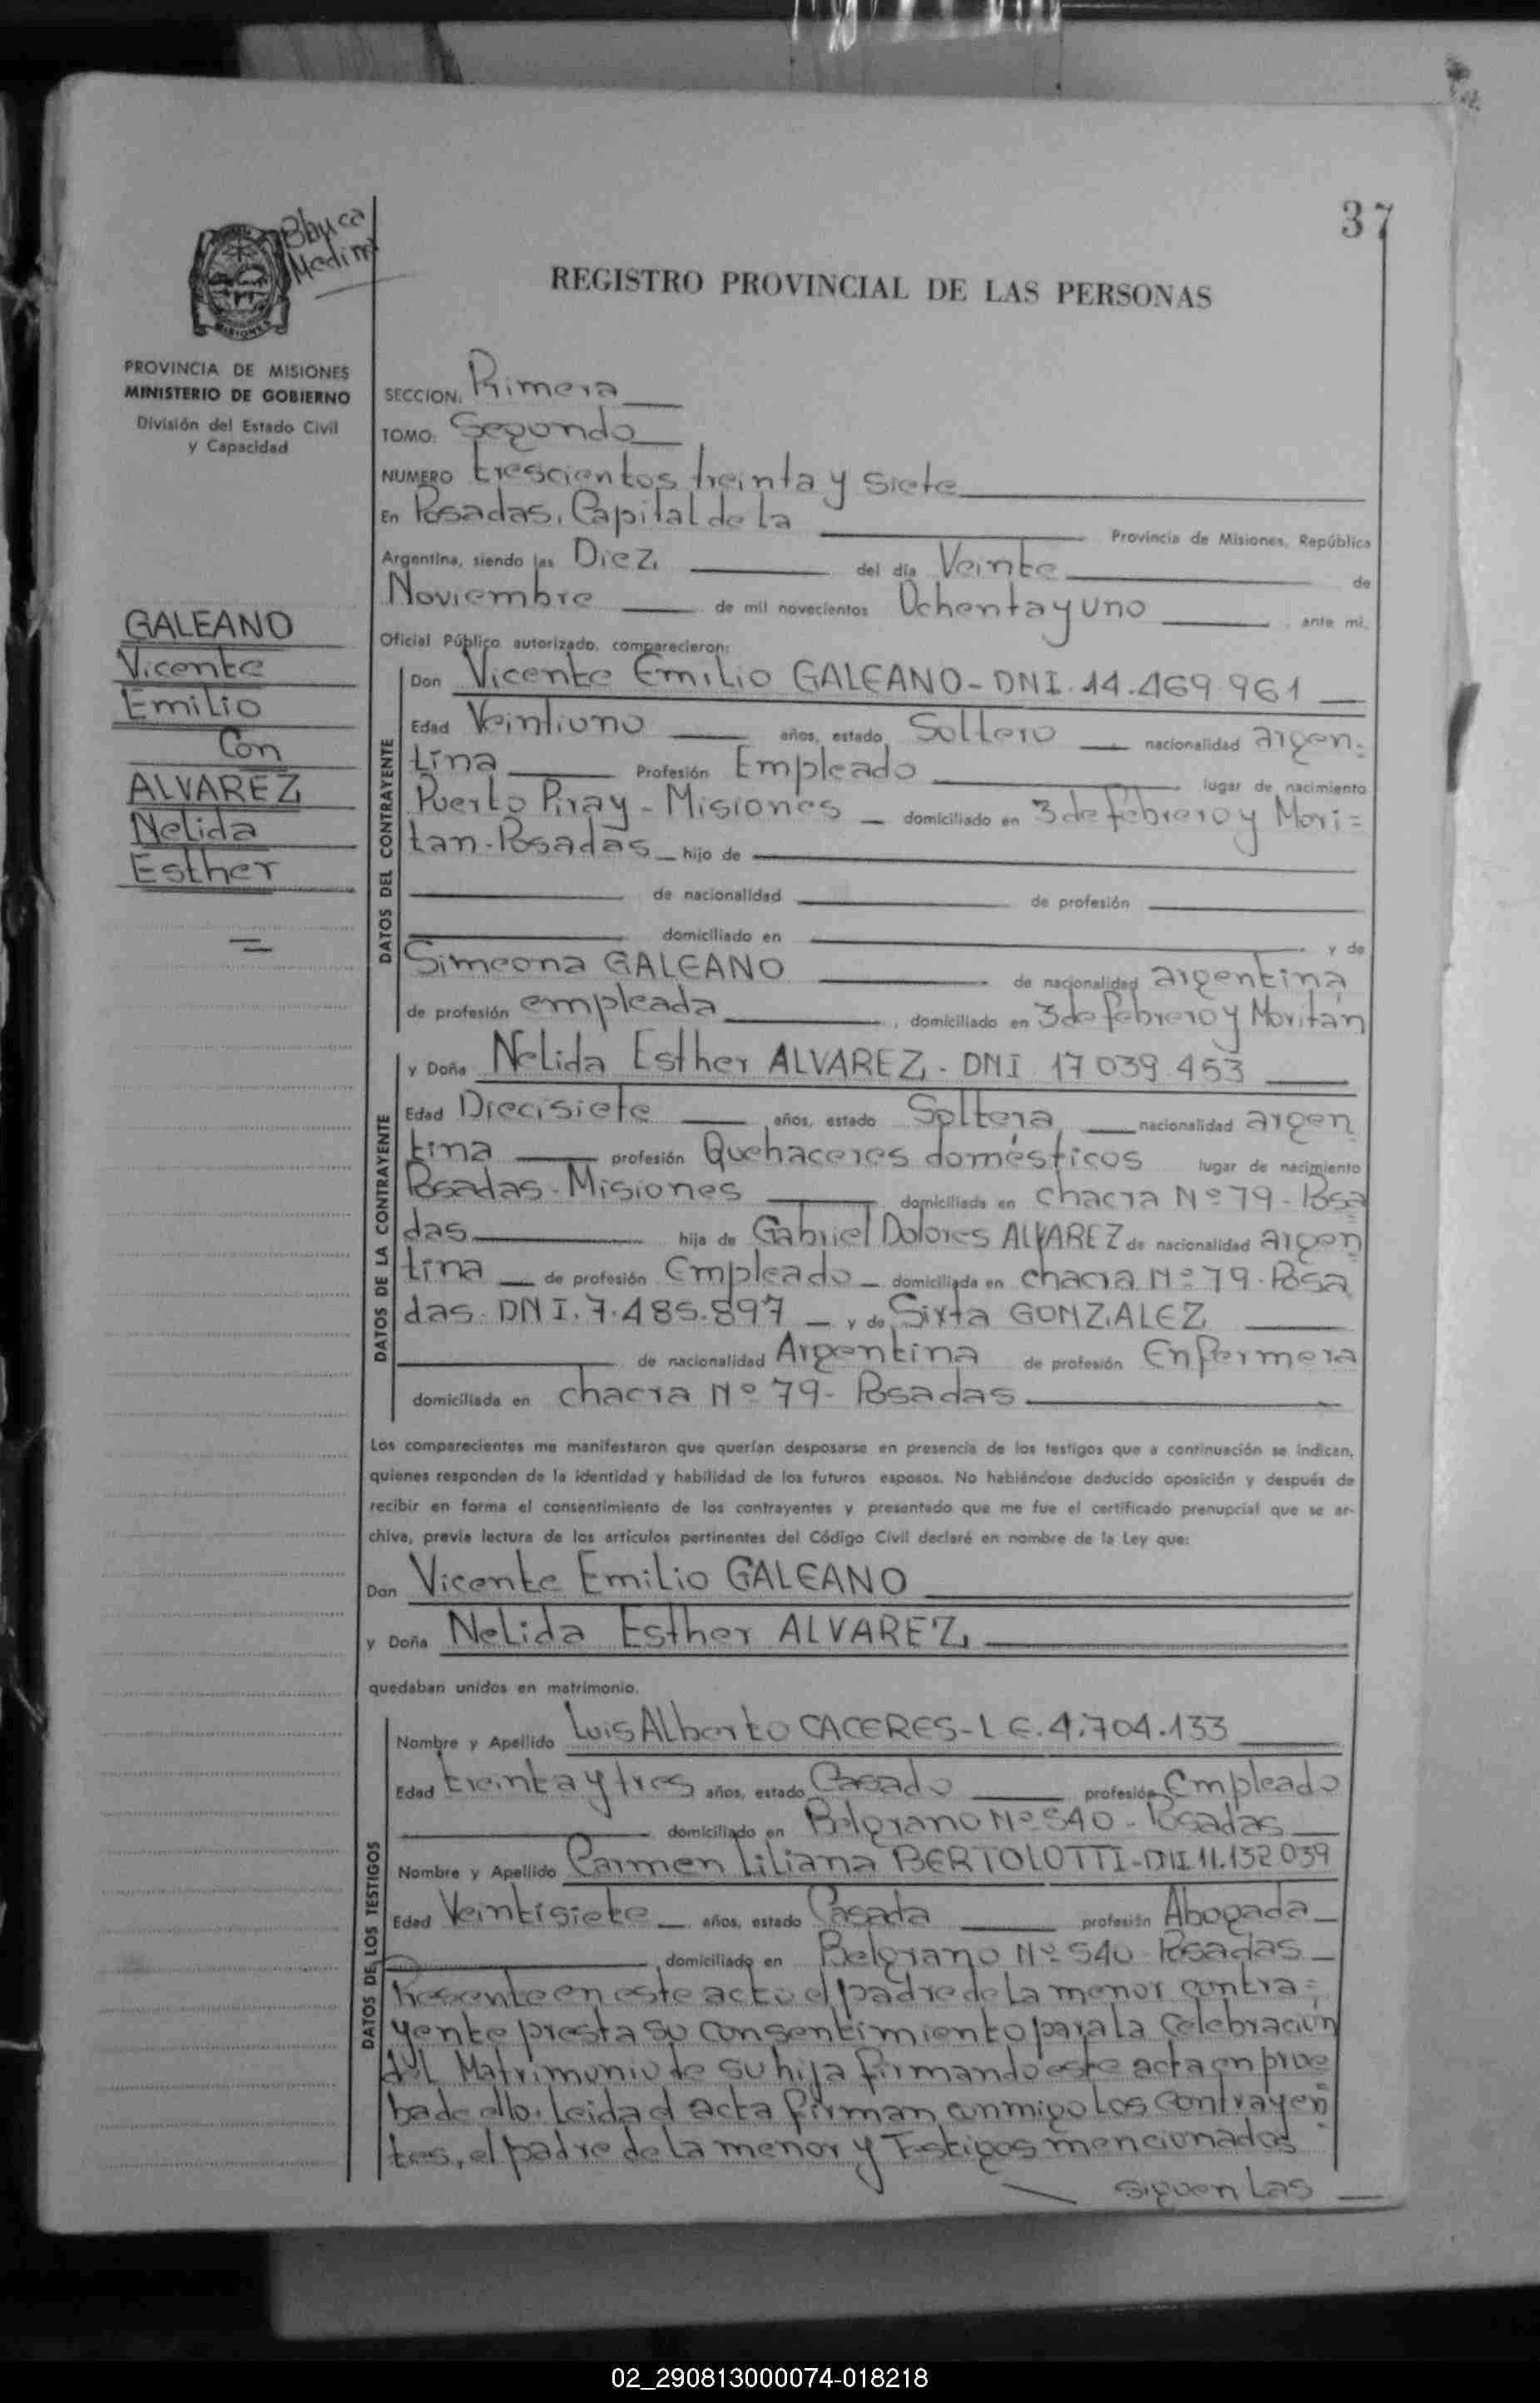 37
Medina
MISIONES
REGISTRO PROVINCIAL DE LAS PERSONAS
PROVINCIA DE MISIONES
MINISTERIO DE GOBIERNO
División del Estado Civil
y Capacidad
SECCION: Primera
TOMO: Segundo
NUMERO trescientos treinta y siete
En Posadas, Capital de La Provincia de Misiones, República
Argentina, siendo las Diez, del día Veinte de
Noviembre de mil novecientos Ochenta y uno, ante mí,
Oficial Público autorizado, comparecieron:
GALEANO
Vicente
Emilio
Con
ALVAREZ
Nelida
Esther
=
DATOS DEL CONTRAYENTE
Don Vicente Emilio GALEANO - DNI. 14.469.961
Edad Veintiuno años, estado Soltero nacionalidad argen=
tina Profesión Empleado lugar de nacimiento
Puerto Piray - Misiones - domiciliado en 3 de febrero y Mori=
tan - Posadas hijo de
de nacionalidad de profesión
domiciliado en y de
Simeona GALEANO de nacionalidad argentina
de profesión empleada, domiciliado en 3 de febrero y Moritan
DATOS DE LA CONTRAYENTE
y Doña Nelida Esther ALVAREZ - DNI 17 039 453
Edad Diecisiete años, estado Soltera nacionalidad argen
tina profesión Quehaceres domésticos lugar de nacimiento
Posadas - Misiones domiciliada en chacra Nº 79 - Posa
das hija de Gabriel Dolores ALVAREZ de nacionalidad argen
tina de profesión Empleado - domiciliada en chacra Nº 79 - Posa
das - DNI. 7.485.897 - y de Sixta GONZALEZ
de nacionalidad Argentina de profesión Enfermera
domiciliada en chacra Nº 79 - Posadas
Los comparecientes me manifestaron que querían desposarse en presencia de los testigos que a continuación se indican,
quienes responden de la identidad y habilidad de los futuros esposos. No habiéndose deducido oposición y después de
recibir en forma el consentimiento de los contrayentes y presentado que me fue el certificado prenupcial que se ar-
chiva, previa lectura de los artículos pertinentes del Código Civil declaré en nombre de la Ley que:
Don Vicente Emilio GALEANO
y Doña Nelida Esther ALVAREZ
quedaban unidos en matrimonio.
DATOS DE LOS TESTIGOS
Nombre y Apellido Luis Alberto CACERES - L E. 4.704.133
Edad treinta y tres años, estado Casado profesión Empleado
domiciliado en Belgrano Nº 540 - Posadas
Nombre y Apellido Carmen Liliana BERTOLOTTI - DNI 11.132 039
Edad Veintisiete años, estado Casada profesión Abogada
domiciliado en Belgrano Nº 540 Posadas
Presente en este acto el padre de la menor contra=
yente presta su consentimiento para la celebración
del Matrimonio de su hija firmando este acta en prue
ba de ello. Leida el acta firman conmigo Los contrayen=
tes, el padre de la menor y Testigos mencionados
siguen Las
02_290813000074-018218